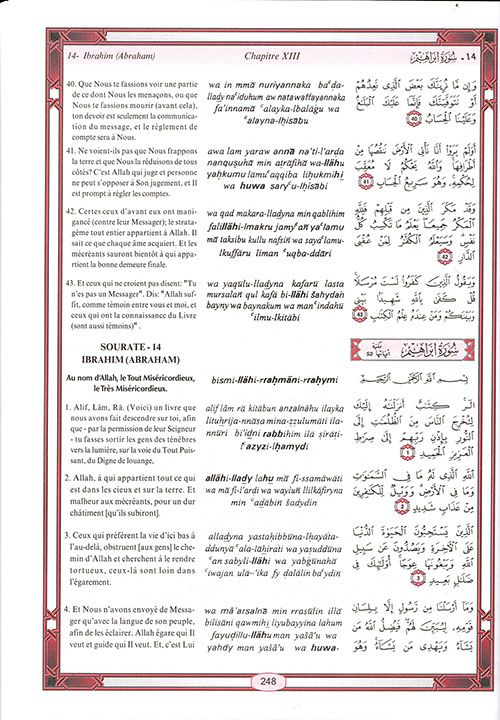 14- Ibrahim (Abraham)
Chapitre XIII
14 - سُورَةُ إِبْرَاهِيم
40. Que Nous te fassions voir une partie
de ce dont Nous les menaçons, ou que
Nous te fassions mourir (avant cela),
ton devoir est seulement la communica-
tion du message, et le règlement de
compte sera à Nous.
41. Ne voient-ils pas que Nous frappons
la terre et que Nous la réduisons de tous
côtés? C'est Allah qui juge et personne
ne peut s'opposer à Son jugement, et Il
est prompt à régler les comptes.
42. Certes ceux d'avant eux ont mani-
gancé (contre leur Messager); le strata-
gème tout entier appartient à Allah. Il
sait ce que chaque âme acquiert. Et les
mécréants sauront bientôt à qui appar-
tient la bonne demeure finale.
43. Et ceux qui ne croient pas disent: "Tu
n'es pas un Messager". Dis: "Allah suf-
fit, comme témoin entre vous et moi, et
ceux qui ont la connaissance du Livre
(sont aussi témoins)" .
SOURATE - 14
IBRAHIM (ABRAHAM)
Au nom d'Allah, le Tout Miséricordieux,
le Très Miséricordieux.
1. Alif, Lām, Rā. (Voici) un livre que
nous avons fait descendre sur toi, afin
que - par la permission de leur Seigneur
- tu fasses sortir les gens des ténèbres
vers la lumière, sur la voie du Tout Puis-
sant, du Digne de louange,
2. Allah, à qui appartient tout ce qui
est dans les cieux et sur la terre. Et
malheur aux mécréants, pour un dur
châtiment [qu'ils subiront].
3. Ceux qui préfèrent la vie d'ici bas à
l'au-delà, obstruent [aux gens] le che-
min d'Allah et cherchent à le rendre
tortueux, ceux-là sont loin dans
l'égarement.
4. Et Nous n'avons envoyé de Messa-
ger qu'avec la langue de son peuple,
afin de les éclairer. Allah égare qui Il
veut et guide qui Il veut. Et, c'est Lui
wa in mmā nuriyannaka baʿḍa-
llady naʿiduhum aw natawaffayannaka
fa'innamā ʿalayka-lbalāġu wa
ʿalayna-lḥisābu
awa lam yaraw annā na'ti-l'arḍa
nanquṣuhā min aṭrāfihā wa-llāhu
yaḥkumu lamuʿaqqiba liḥukmihi
wa huwa saryʿu-lḥisābi
wa qad makara-lladyna min qablihim
falillāhi-lmakru jamyʿan yaʿlamu
mā taksibu kullu nafsin wa sayaʿlamu-
lkuffāru liman ʿuqba-ddāri
wa yaqūlu-lladyna kafarū lasta
mursalan qul kafā bi-llāhi šahydan
bayny wa baynakum wa manʿindahū
ʿilmu-lkitābi
bismi-llāhi-rraḥmāni-rraḥymi
alif lām rā kitābun anzalnāhu ilayka
lituḫrija-nnāsa mina-ẓẓulumāti ila-
nnūri bi'idni rabbihim ilā ṣirāṭi-
lʿazyzi-lḥamydi
allāhi-llady lahu mā fi-ssamāwāti
wa mā fi-l'arḍi wa waylun llilkāfiryna
min ʿadābin šadydin
alladyna yastaḥibbūna-lḥayāta-
ddunyā ʿala-l'āḫirati wa yaṣuddūna
ʿan sabyli-llāhi wa yabġūnahā
ʿiwajan ulā-'ika fy ḍalālin baʿydin
wa mā'arsalnā min rrasūlin illā
bilisāni qawmihi liyubayyina lahum
fayuḍillu-llāhu man yašā'u wa
yahdy man yašā'u wa huwa-
وَإِن مَّا نُرِيَنَّكَ بَعْضَ ٱلَّذِى نَعِدُهُمْ
أَوْ نَتَوَفَّيَنَّكَ فَإِنَّمَا عَلَيْكَ ٱلْبَلَٰغُ
وَعَلَيْنَا ٱلْحِسَابُ 40
أَوَلَمْ يَرَوْا۟ أَنَّا نَأْتِى ٱلْأَرْضَ نَنقُصُهَا مِنْ
أَطْرَافِهَا وَٱللَّهُ يَحْكُمُ لَا مُعَقِّبَ
لِحُكْمِهِۦ وَهُوَ سَرِيعُ ٱلْحِسَابِ 41
وَقَدْ مَكَرَ ٱلَّذِينَ مِن قَبْلِهِمْ فَلِلَّهِ
ٱلْمَكْرُ جَمِيعًا يَعْلَمُ مَا تَكْسِبُ كُلُّ
نَفْسٍ وَسَيَعْلَمُ ٱلْكُفَّٰرُ لِمَنْ عُقْبَى
ٱلدَّارِ 42
وَيَقُولُ ٱلَّذِينَ كَفَرُوا۟ لَسْتَ مُرْسَلًا
قُلْ كَفَىٰ بِٱللَّهِ شَهِيدًۢا بَيْنِى
وَبَيْنَكُمْ وَمَنْ عِندَهُۥ عِلْمُ ٱلْكِتَٰبِ 43
سُورَةُ إِبْرَاهِيم مكية آياتها 52
بِسْمِ ٱللَّهِ ٱلرَّحْمَٰنِ ٱلرَّحِيمِ
الٓر كِتَٰبٌ أَنزَلْنَٰهُ إِلَيْكَ
لِتُخْرِجَ ٱلنَّاسَ مِنَ ٱلظُّلُمَٰتِ إِلَى
ٱلنُّورِ بِإِذْنِ رَبِّهِمْ إِلَىٰ صِرَٰطِ
ٱلْعَزِيزِ ٱلْحَمِيدِ 1
ٱللَّهِ ٱلَّذِى لَهُۥ مَا فِى ٱلسَّمَٰوَٰتِ
وَمَا فِى ٱلْأَرْضِ وَوَيْلٌ لِّلْكَٰفِرِينَ
مِنْ عَذَابٍ شَدِيدٍ 2
ٱلَّذِينَ يَسْتَحِبُّونَ ٱلْحَيَوٰةَ ٱلدُّنْيَا
عَلَى ٱلْءَاخِرَةِ وَيَصُدُّونَ عَن سَبِيلِ
ٱللَّهِ وَيَبْغُونَهَا عِوَجًا أُو۟لَٰٓئِكَ فِى
ضَلَٰلٍۭ بَعِيدٍ 3
وَمَآ أَرْسَلْنَا مِن رَّسُولٍ إِلَّا بِلِسَانِ
قَوْمِهِۦ لِيُبَيِّنَ لَهُمْ فَيُضِلُّ ٱللَّهُ مَن
يَشَآءُ وَيَهْدِى مَن يَشَآءُ وَهُوَ
248